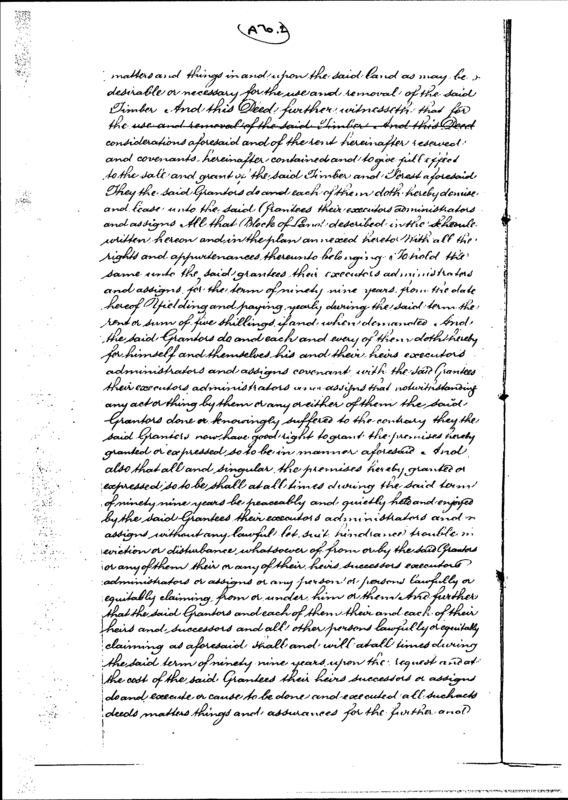 (A 70. 2)
matters and things in and upon the said land as may be
desirable or necessary for the use and removal of the said
Timber And this Deed further witnesseth that for
the use and removal of the said Timber And this Deed
considerations aforesaid and of the rent hereinafter reserved
and covenants hereinafter contained and to give full effect
to the sale and grant of the said Timber and Forest aforesaid
They the said Grantors do and each of them doth hereby demise
and lease unto the said Grantees their executors administrators
and assigns All that Block of Land described in the Schedule
written hereon and in the plan annexed hereto With all the
rights and appurtenances thereunto belonging To hold the
same unto the said grantees their executors administrators
and assigns for the term of ninety nine years from the date
hereof Yielding and paying yearly during the said term the
rent or sum of five shillings if and when demanded And
the said Grantors do and each and every of them doth hereby
for himself and themselves his and their heirs executors
administrators and assigns covenant with the said Grantees
their executors administrators and assigns that notwithstanding
any act or thing by them or any or either of them the said
Grantors done or knowingly suffered to the contrary they the
said Grantors now have good right to grant the premises hereby
granted or expressed so to be in manner aforesaid And
also that all and singular the premises hereby granted or
expressed so to be shall at all times during the said term
of ninety nine years be peaceably and quietly held and enjoyed
by the said Grantees their executors administrators and
assigns without any lawful let suit hindrance trouble
eviction or disturbance whatsoever of from or by the said Grantors
or any of them their or any of their heirs successors executors
administrators or assigns or any person or persons lawfully or
equitably claiming from or under him or them And further
that the said Grantors and each of them their and each of their
heirs and successors and all other persons lawfully or equitably
claiming as aforesaid shall and will at all times during
the said term of ninety nine years upon the request and at
the cost of the said Grantees their heirs successors or assigns
do and execute or cause to be done and executed all such acts
deeds matters things and assurances for the further and